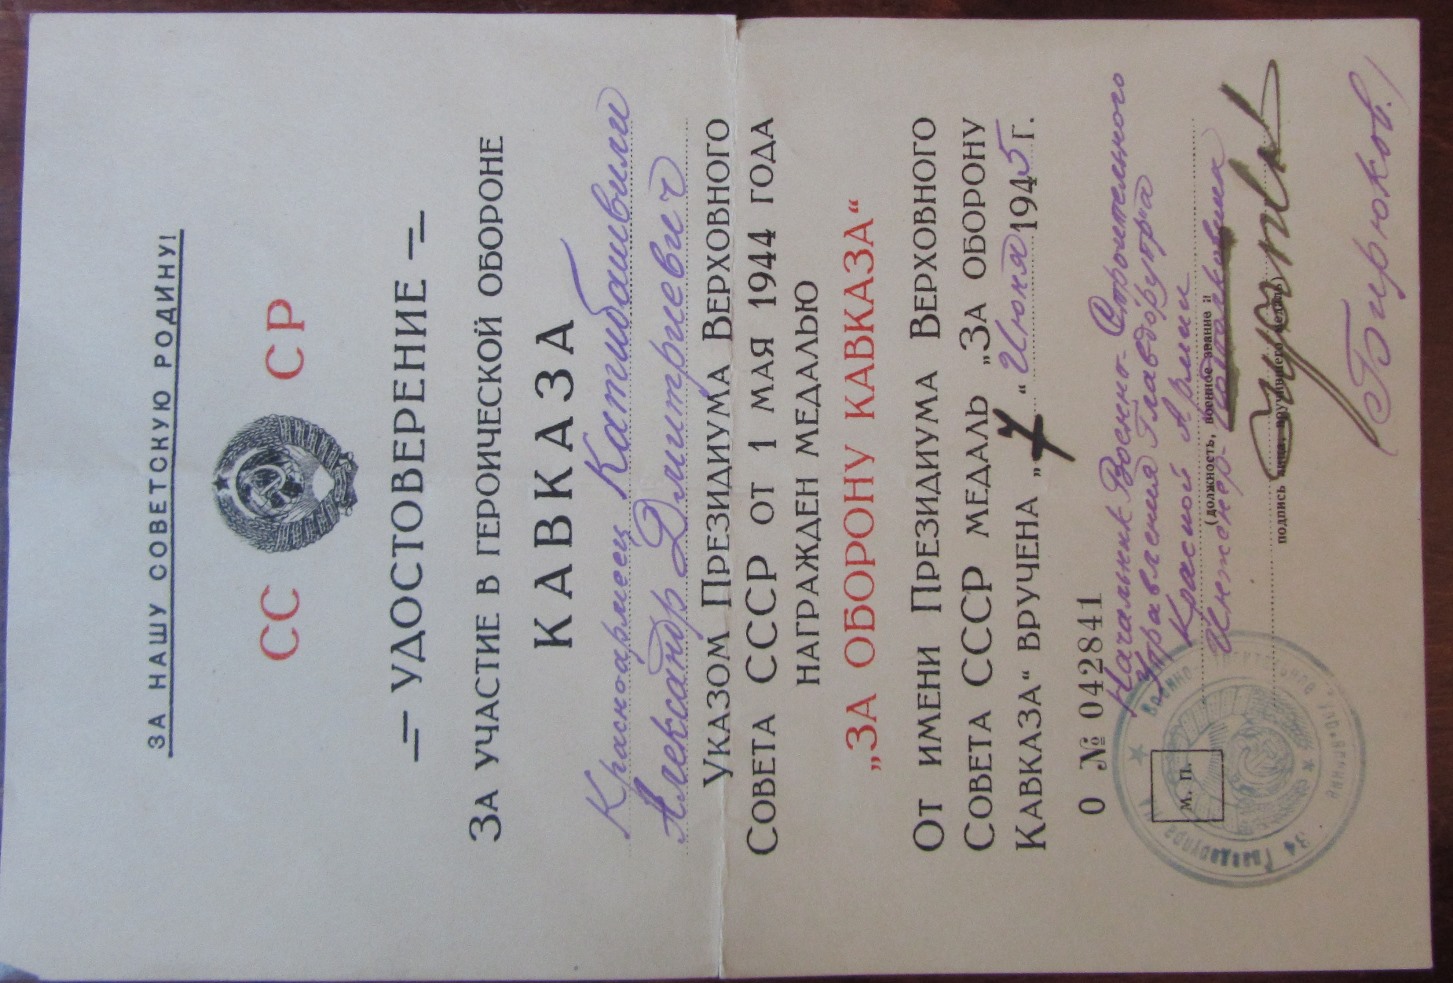 ЗА НАШУ СОВЕТСКУЮ РОДИНУ!
СС СР
УДОСТОВЕРЕНИЕ
ЗА УЧАСТИЕ В ГЕРОИЧЕСКОЙ ОБОРОНЕ
КАВКАЗА
Красноармеец Катибашвили
Александр Дмитриевич
УКАЗОМ ПРЕЗИДИУМА ВЕРХОВНОГО
СОВЕТА СССР ОТ 1 МАЯ 1944 ГОДА
НАГРАЖДЕН МЕДАЛЬЮ
„ЗА ОБОРОНУ КАВКАЗА“
ОТ ИМЕНИ ПРЕЗИДИУМА ВЕРХОВНОГО
СОВЕТА СССР МЕДАЛЬ „ЗА ОБОРОНУ
КАВКАЗА“ ВРУЧЕНА „7“ Июня 1945 г.
О № 042841
Начальник Военно-Строительного
Управления Главоборупра
Красной Армии
(должность, военное звание и
Инженер-подполковник
подпись лица, вручившего медаль)
(Бирюков.)
М. П.